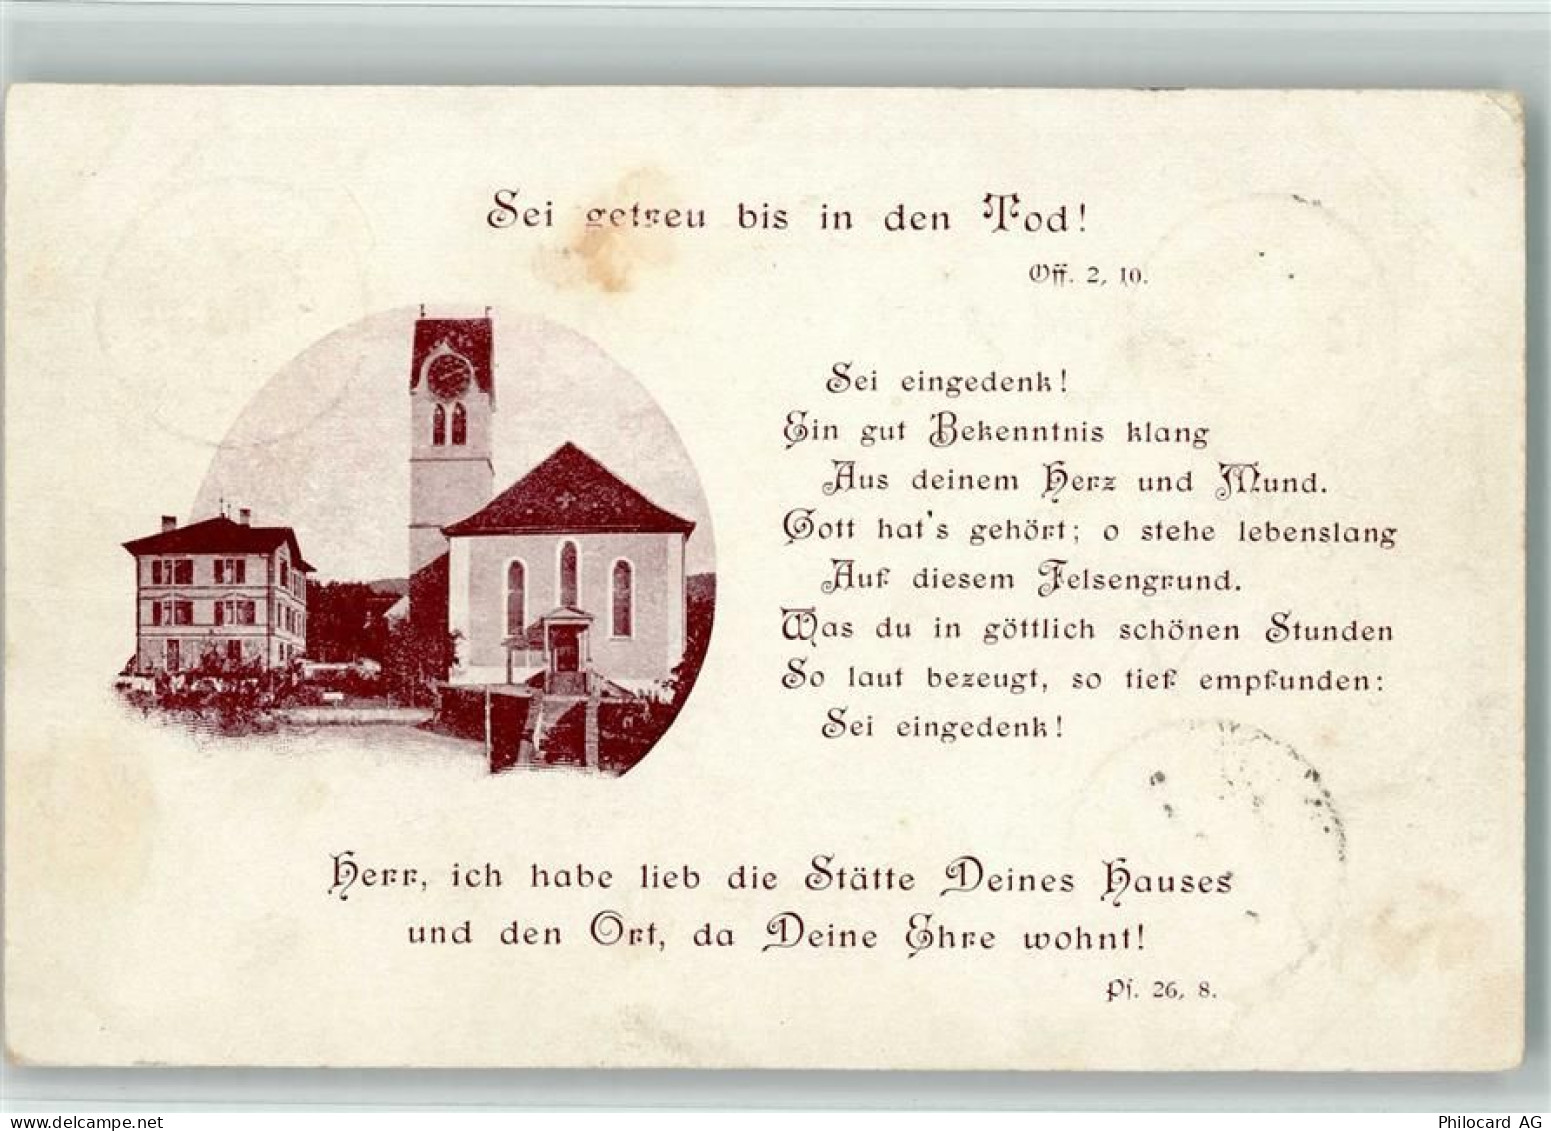 Sei getreu bis in den Tod!
Off. 2, 10.
Sei eingedenk!
Ein gut Bekenntnis klang
Aus deinem Herz und Mund.
Gott hat's gehört; o stehe lebenslang
Auf diesem Felsengrund.
Was du in göttlich schönen Stunden
So laut bezeugt, so tief empfunden:
Sei eingedenk!
Herr, ich habe lieb die Stätte Deines Hauses
und den Ort, da Deine Ehre wohnt!
Ps. 26, 8.
Philocard AG